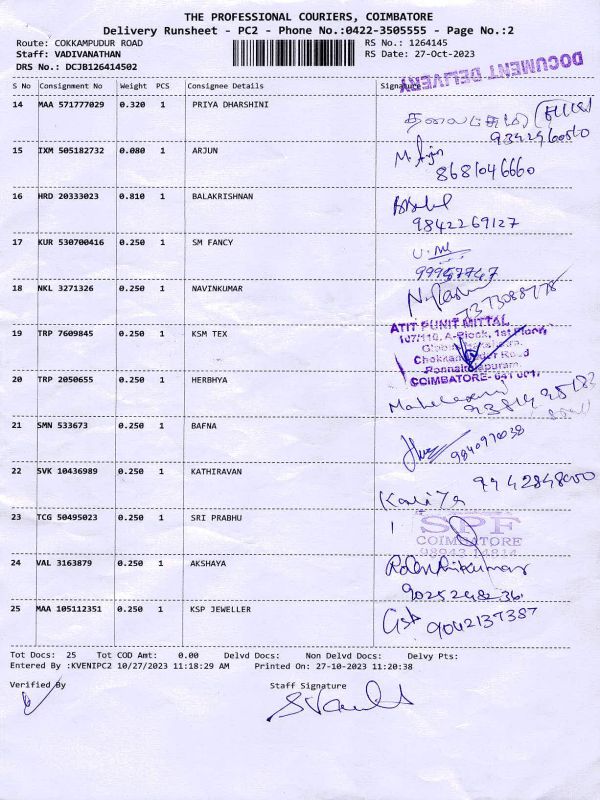 THE PROFESSIONAL COURIERS, COIMBATORE
Delivery Runsheet - PC2 - Phone No.:0422-3505555 - Page No.:2
Route: COKKAMPUDUR ROAD RS No.: 1264145
Staff: VADIVANATHAN RS Date: 27-Oct-2023
DRS No.: DCJB126414502
DOCUMENT DELIVERY
S No Consignment No Weight PCS Consignee Details Signature
14 MAA 571777029 0.320 1 PRIYA DHARSHINI
15 IXM 505182732 0.080 1 ARJUN
8681046660
16 HRD 20333023 0.810 1 BALAKRISHNAN
9842269127
17 KUR 530700416 0.250 1 SM FANCY
18 NKL 3271326 0.250 1 NAVINKUMAR
7373088778
19 TRP 7609845 0.250 1 KSM TEX
ATIT PUNIT MITTAL
107/110, A-Block, 1st Floor
COIMBATORE- 641 001
20 TRP 2050655 0.250 1 HERBHYA
21 SMN 533673 0.250 1 BAFNA
22 SVK 10436989 0.250 1 KATHIRAVAN
23 TCG 50495023 0.250 1 SRI PRABHU
SPF
COIMBATORE
24 VAL 3163879 0.250 1 AKSHAYA
25 MAA 105112351 0.250 1 KSP JEWELLER
9042137387
Tot Docs: 25 Tot COD Amt: 0.00 Delvd Docs: Non Delvd Docs: Delvy Pts:
Entered By :KVENIPC2 10/27/2023 11:18:29 AM Printed On: 27-10-2023 11:20:38
Verified By Staff Signature